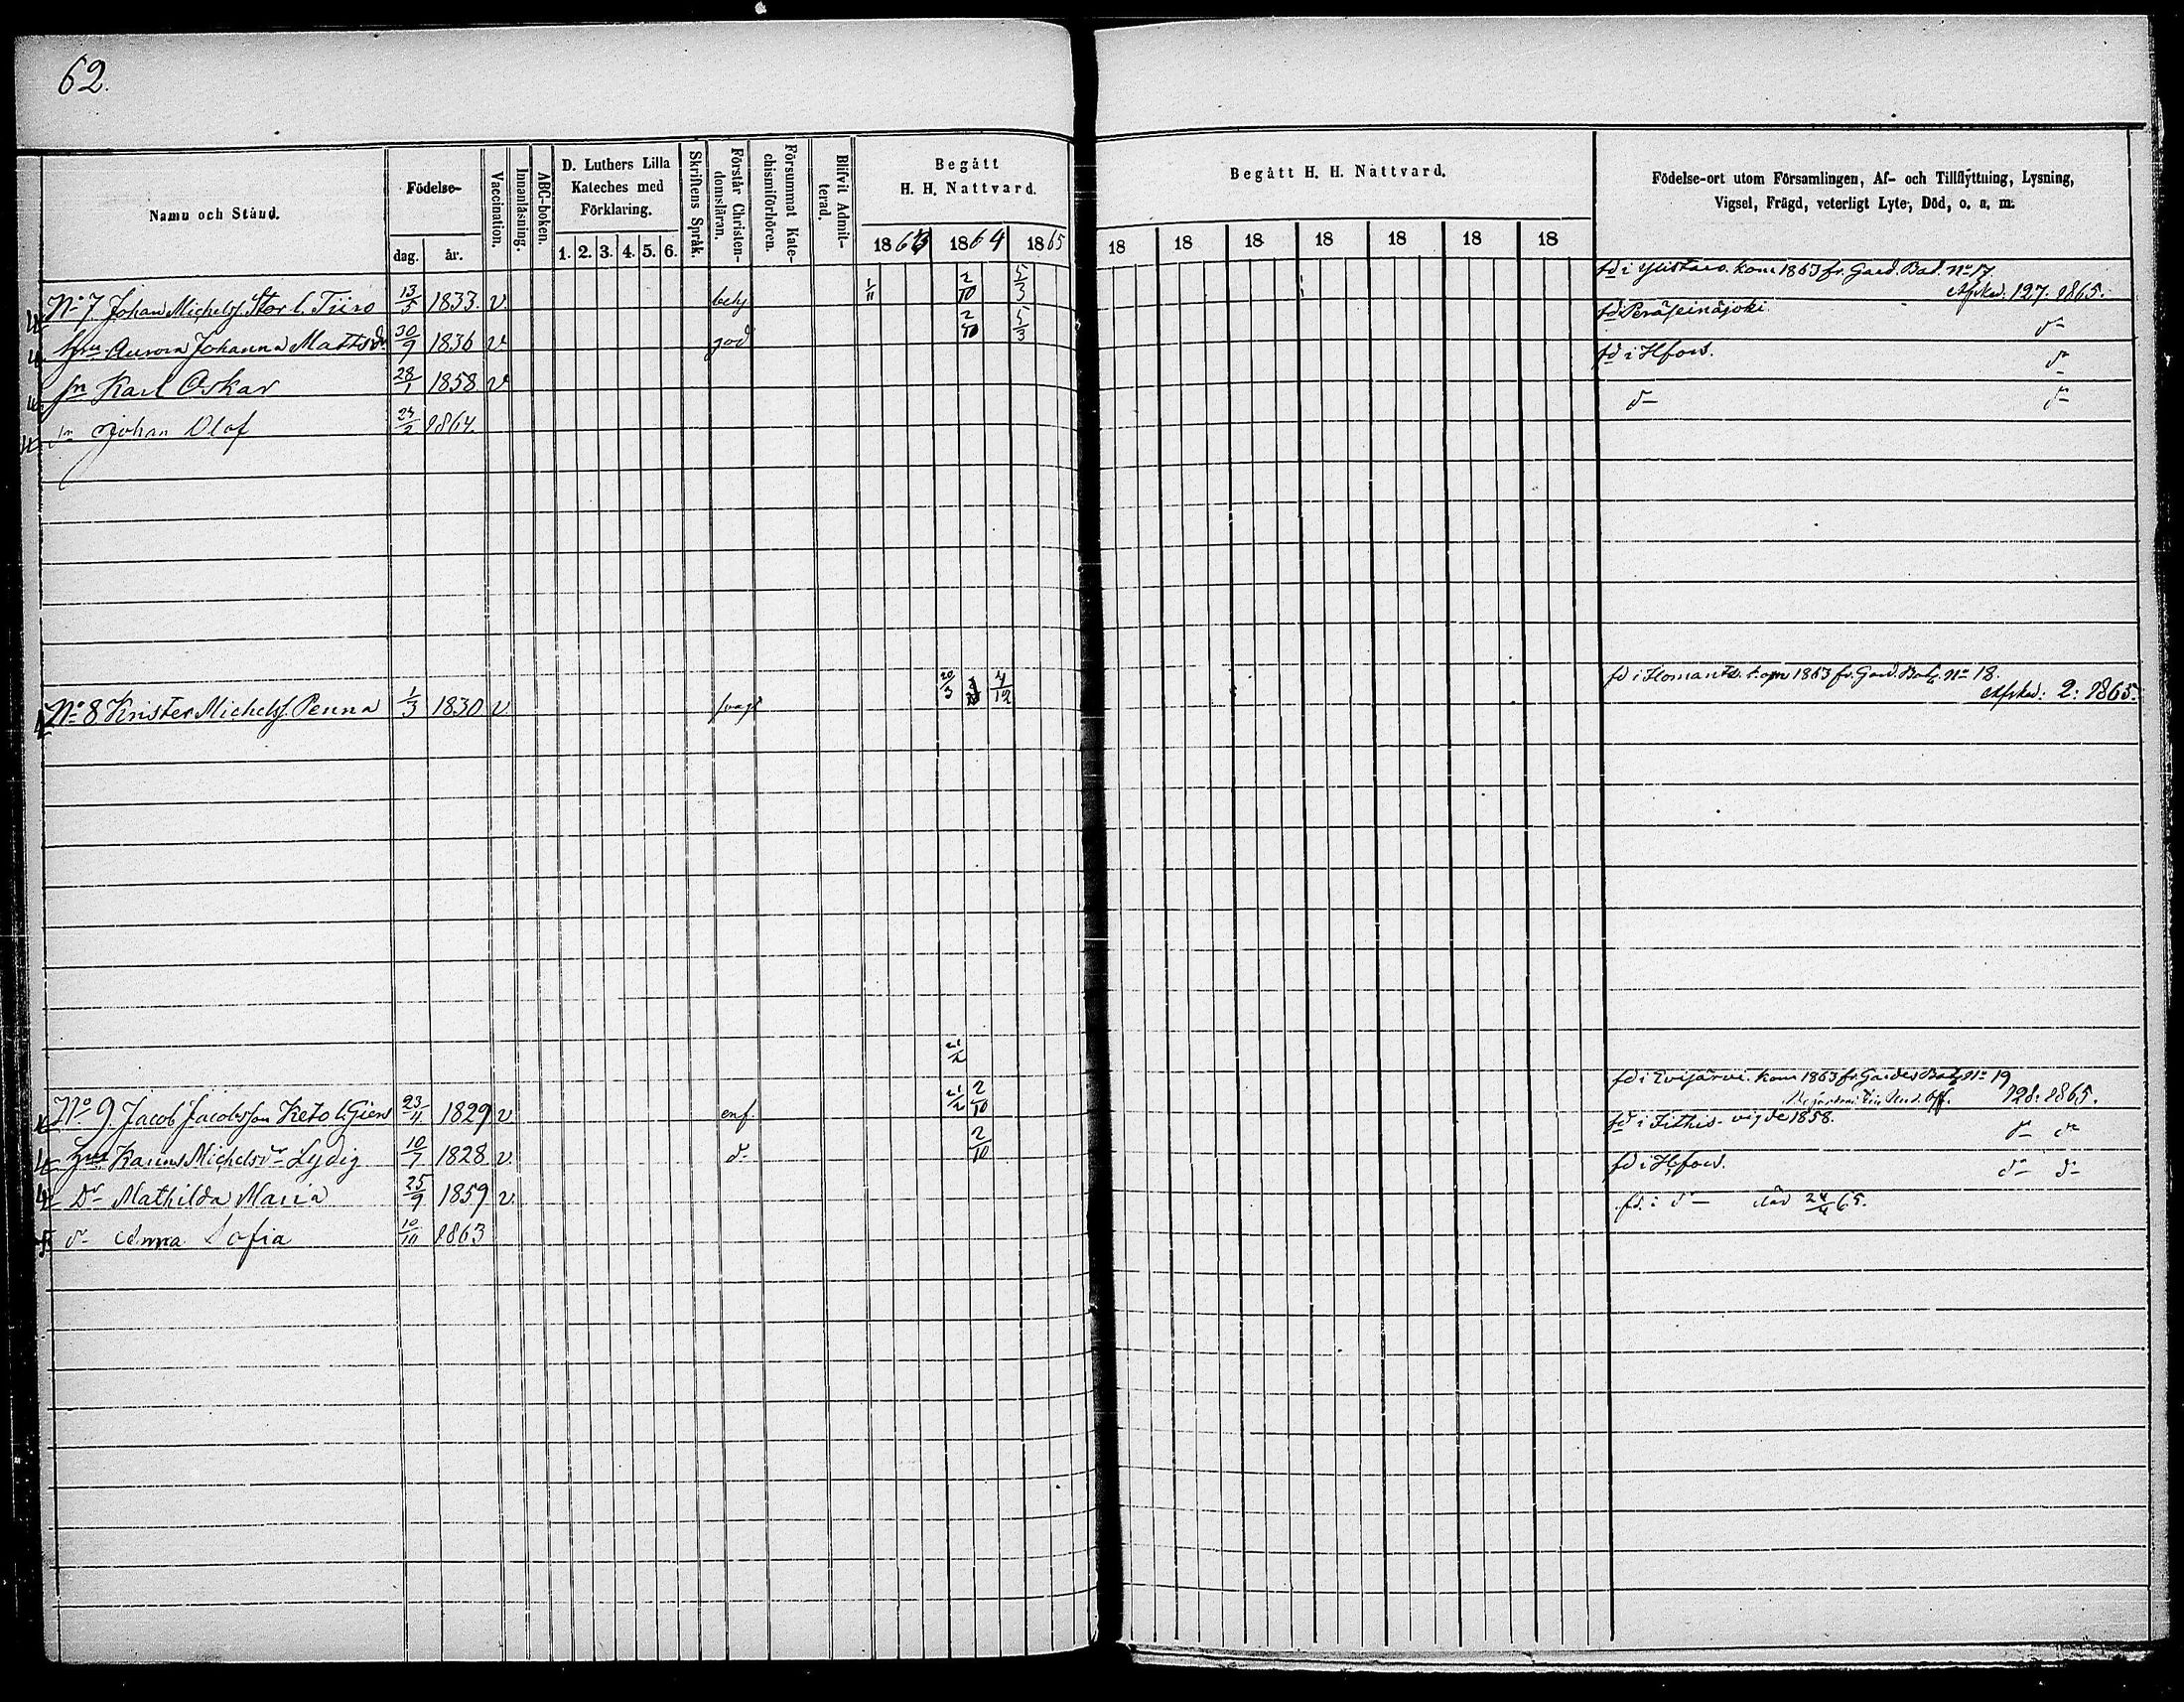 62.
Namn och Stånd.
Födelse-
dag.
år.
Vaccination.
Innanläsning.
ABC-boken.
D. Luthers Lilla
Kateches med
Förklaring.
1. 2. 3. 4. 5. 6.
Skriftens Språk.
Förstår Christen-
domsläran.
Försummat Kate-
chismiförhören.
Blifvit Admit-
terad.
Begått
H. H. Nattvard.
1863 1864 1865
Begått H. H. Nattvard.
18 18 18 18 18 18 18
Födelse-ort utom Församlingen, Af- och Tillflyttning, Lysning,
Vigsel, Frägd, veterligt Lyte, Död, o. s. m.
No 7. Johan Michelss. Stor l. Tiiro 13/5 1833. v. 1/11 2/10 5/3 fd i Ylistaro. kom 1863 fr. Gard. Bat. No 17.
Afsked: 127: 1865.
Hru Aurora Johanna Mattsdr 30/9 1836 v. god 2/10 5/3 fd Peräseinäjoki dº
sn Karl Oskar 28/1 1858 v. fd i Hfors. dº
sn Johan Olof 1864. dº dº
No 8 Krister Michelss. Penna 1/3 1830 v. svag 20/3 4/12 fd i Ilomants. kom 1863 fr. Gard. Bat. No 18.
Afsked: 2: 1865.
21/2
No 9. Jacob Jacobsson Keto l. Giers 23/11 1829 v. enf. 21/2 2/10 fd i Evijärvi. kom 1863 fr. Gardes Bat. No 19
128: 1865.
Hru Michelsdr Lydig 10/7 1828 v. dº 2/10 fd i vigde 1858. dº dº
Dr Mathilda Maria 25/9 1859 v. fd i Hfors. dº dº
dº Anna Sofia 10/10 1863 fd. i dº död 24/4 65.